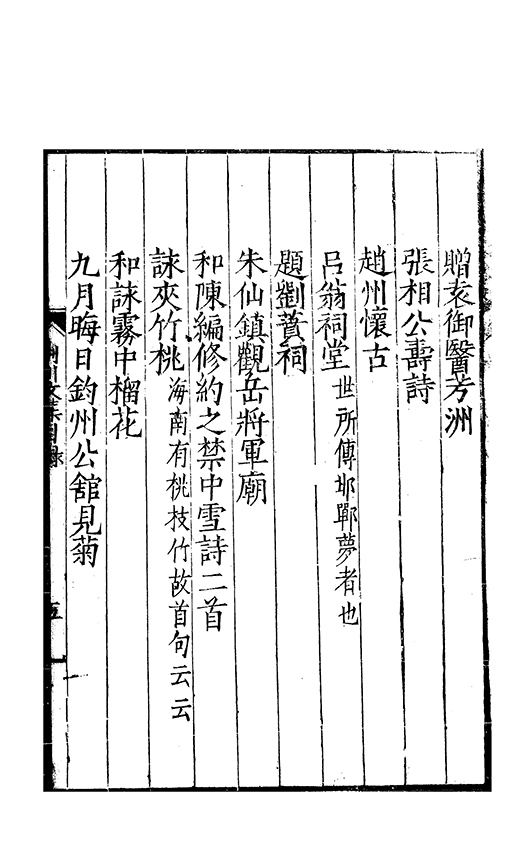 贈袁御醫芳洲
張相公壽詩
趙州懷古
呂翁祠堂世所傳邯鄲夢者也
題劉蕡祠
朱仙鎮觀岳將軍廟
和陳編修約之禁中雪詩二首
詠夾竹桃海南有桃枝竹故首句云云
和詠霧中榴花
九月晦日鈞州公舘見菊